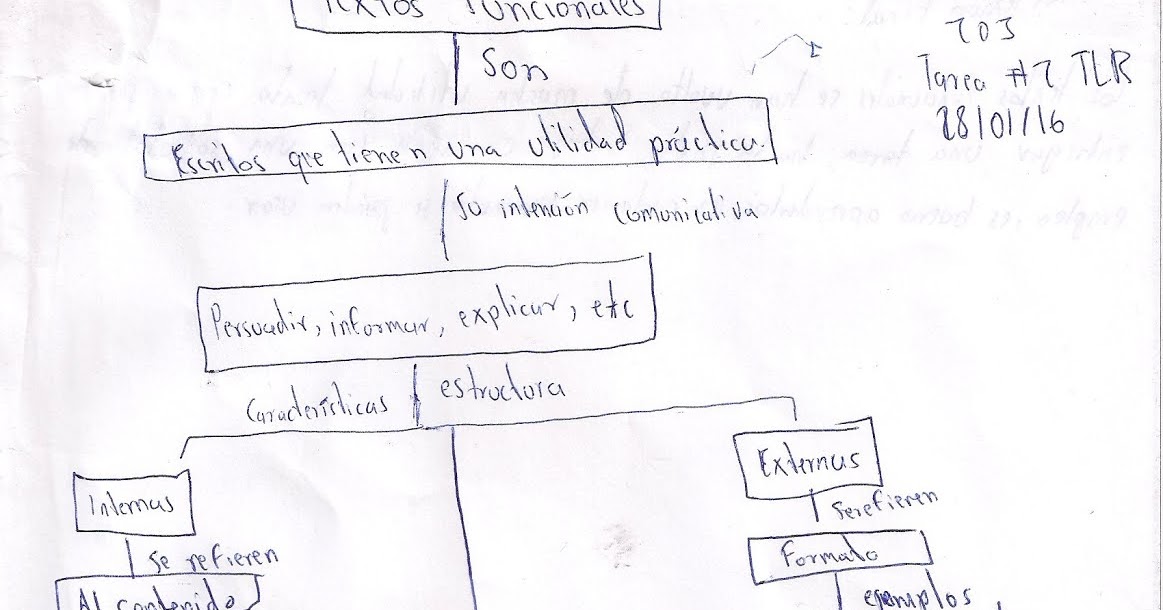 Textos funcionales
203
Son
Tarea #7 TLR
28/01/16
Escritos que tienen una utilidad práctica.
Su intención comunicativa
Persuadir, informar, explicar, etc
Características estructura
Externas
Internas
Se refieren
Se refieren
Formato
Al contenido
ejemplos